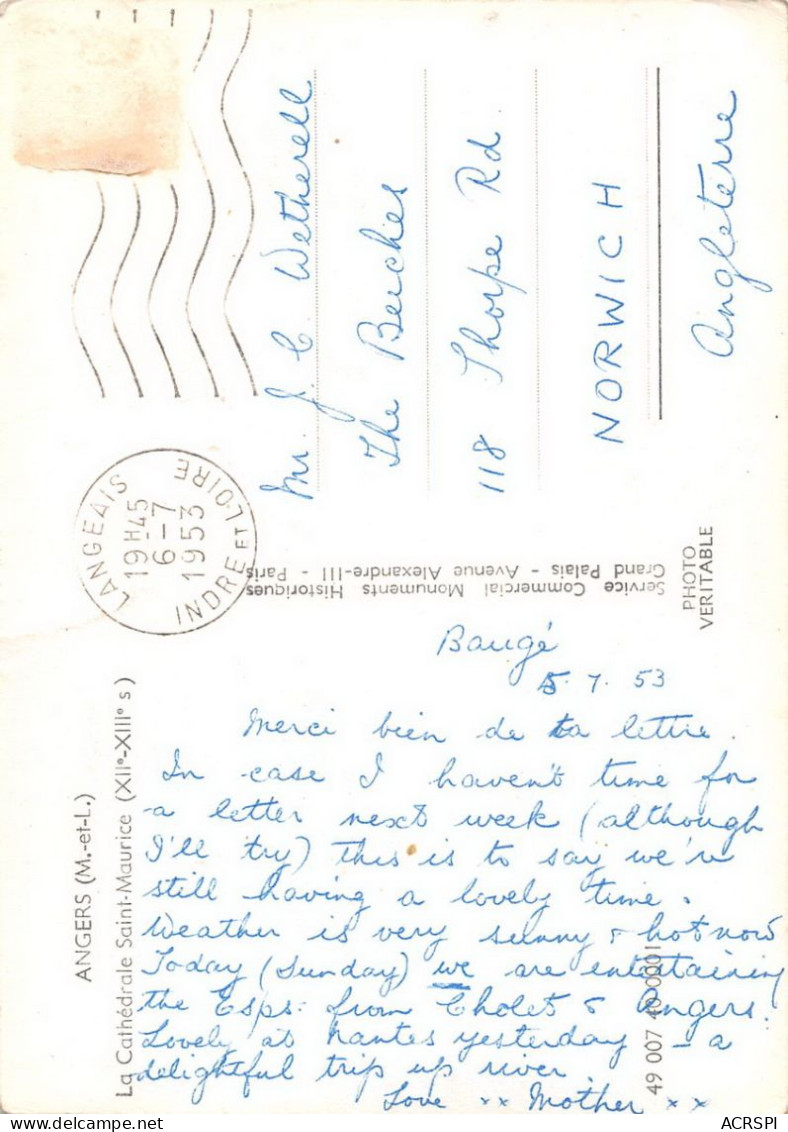 ANGERS (M.-et-L.)
La Cathédrale Saint-Maurice (XIIe-XIIIe s)
Baugé
5. 7. 53
Merci bien de ta lettre.
In case I haven't time for
a letter next week (although
I'll try) this is to say we're
still having a lovely time.
Weather is very sunny & hot now
Today (Sunday) we are entertaining
the Esps. from Cholet & Angers.
Lovely at Nantes yesterday – a
delightful trip up river
Love xx Mother xx
49 007 40 0001
Service Commercial Monuments Historiques
Grand Palais - Avenue Alexandre-III - Paris
PHOTO
VERITABLE
LANGEAIS
19H45
6-7
1953
INDRE ET LOIRE
Mr. J. C. Wetherell
The Beeches
118 Thorpe Rd.
NORWICH
Angleterre
ACRSPI